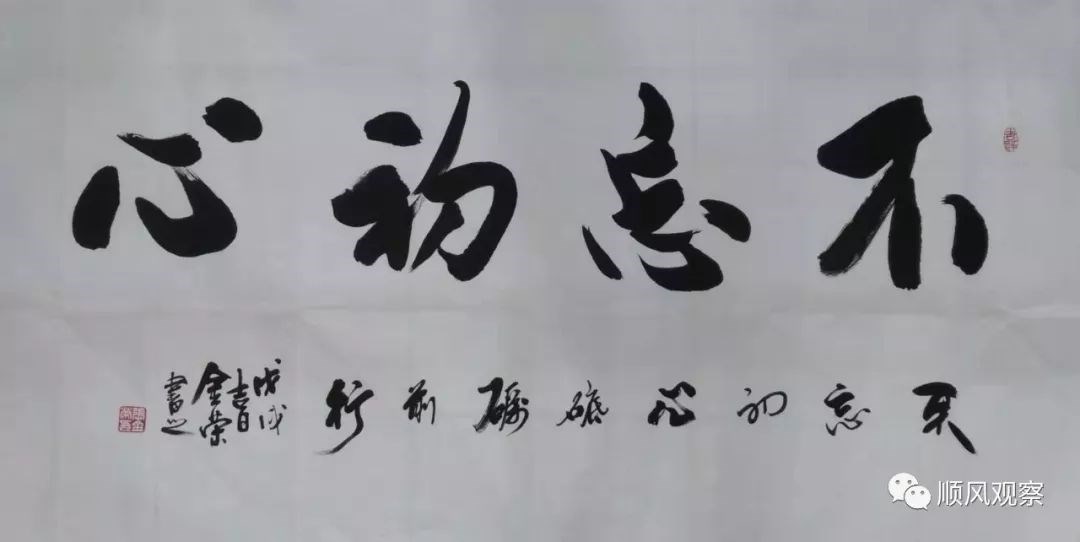 不忘初心
不忘初心砥礪前行
戊戌
吉日
金荣
書之
顺风观察